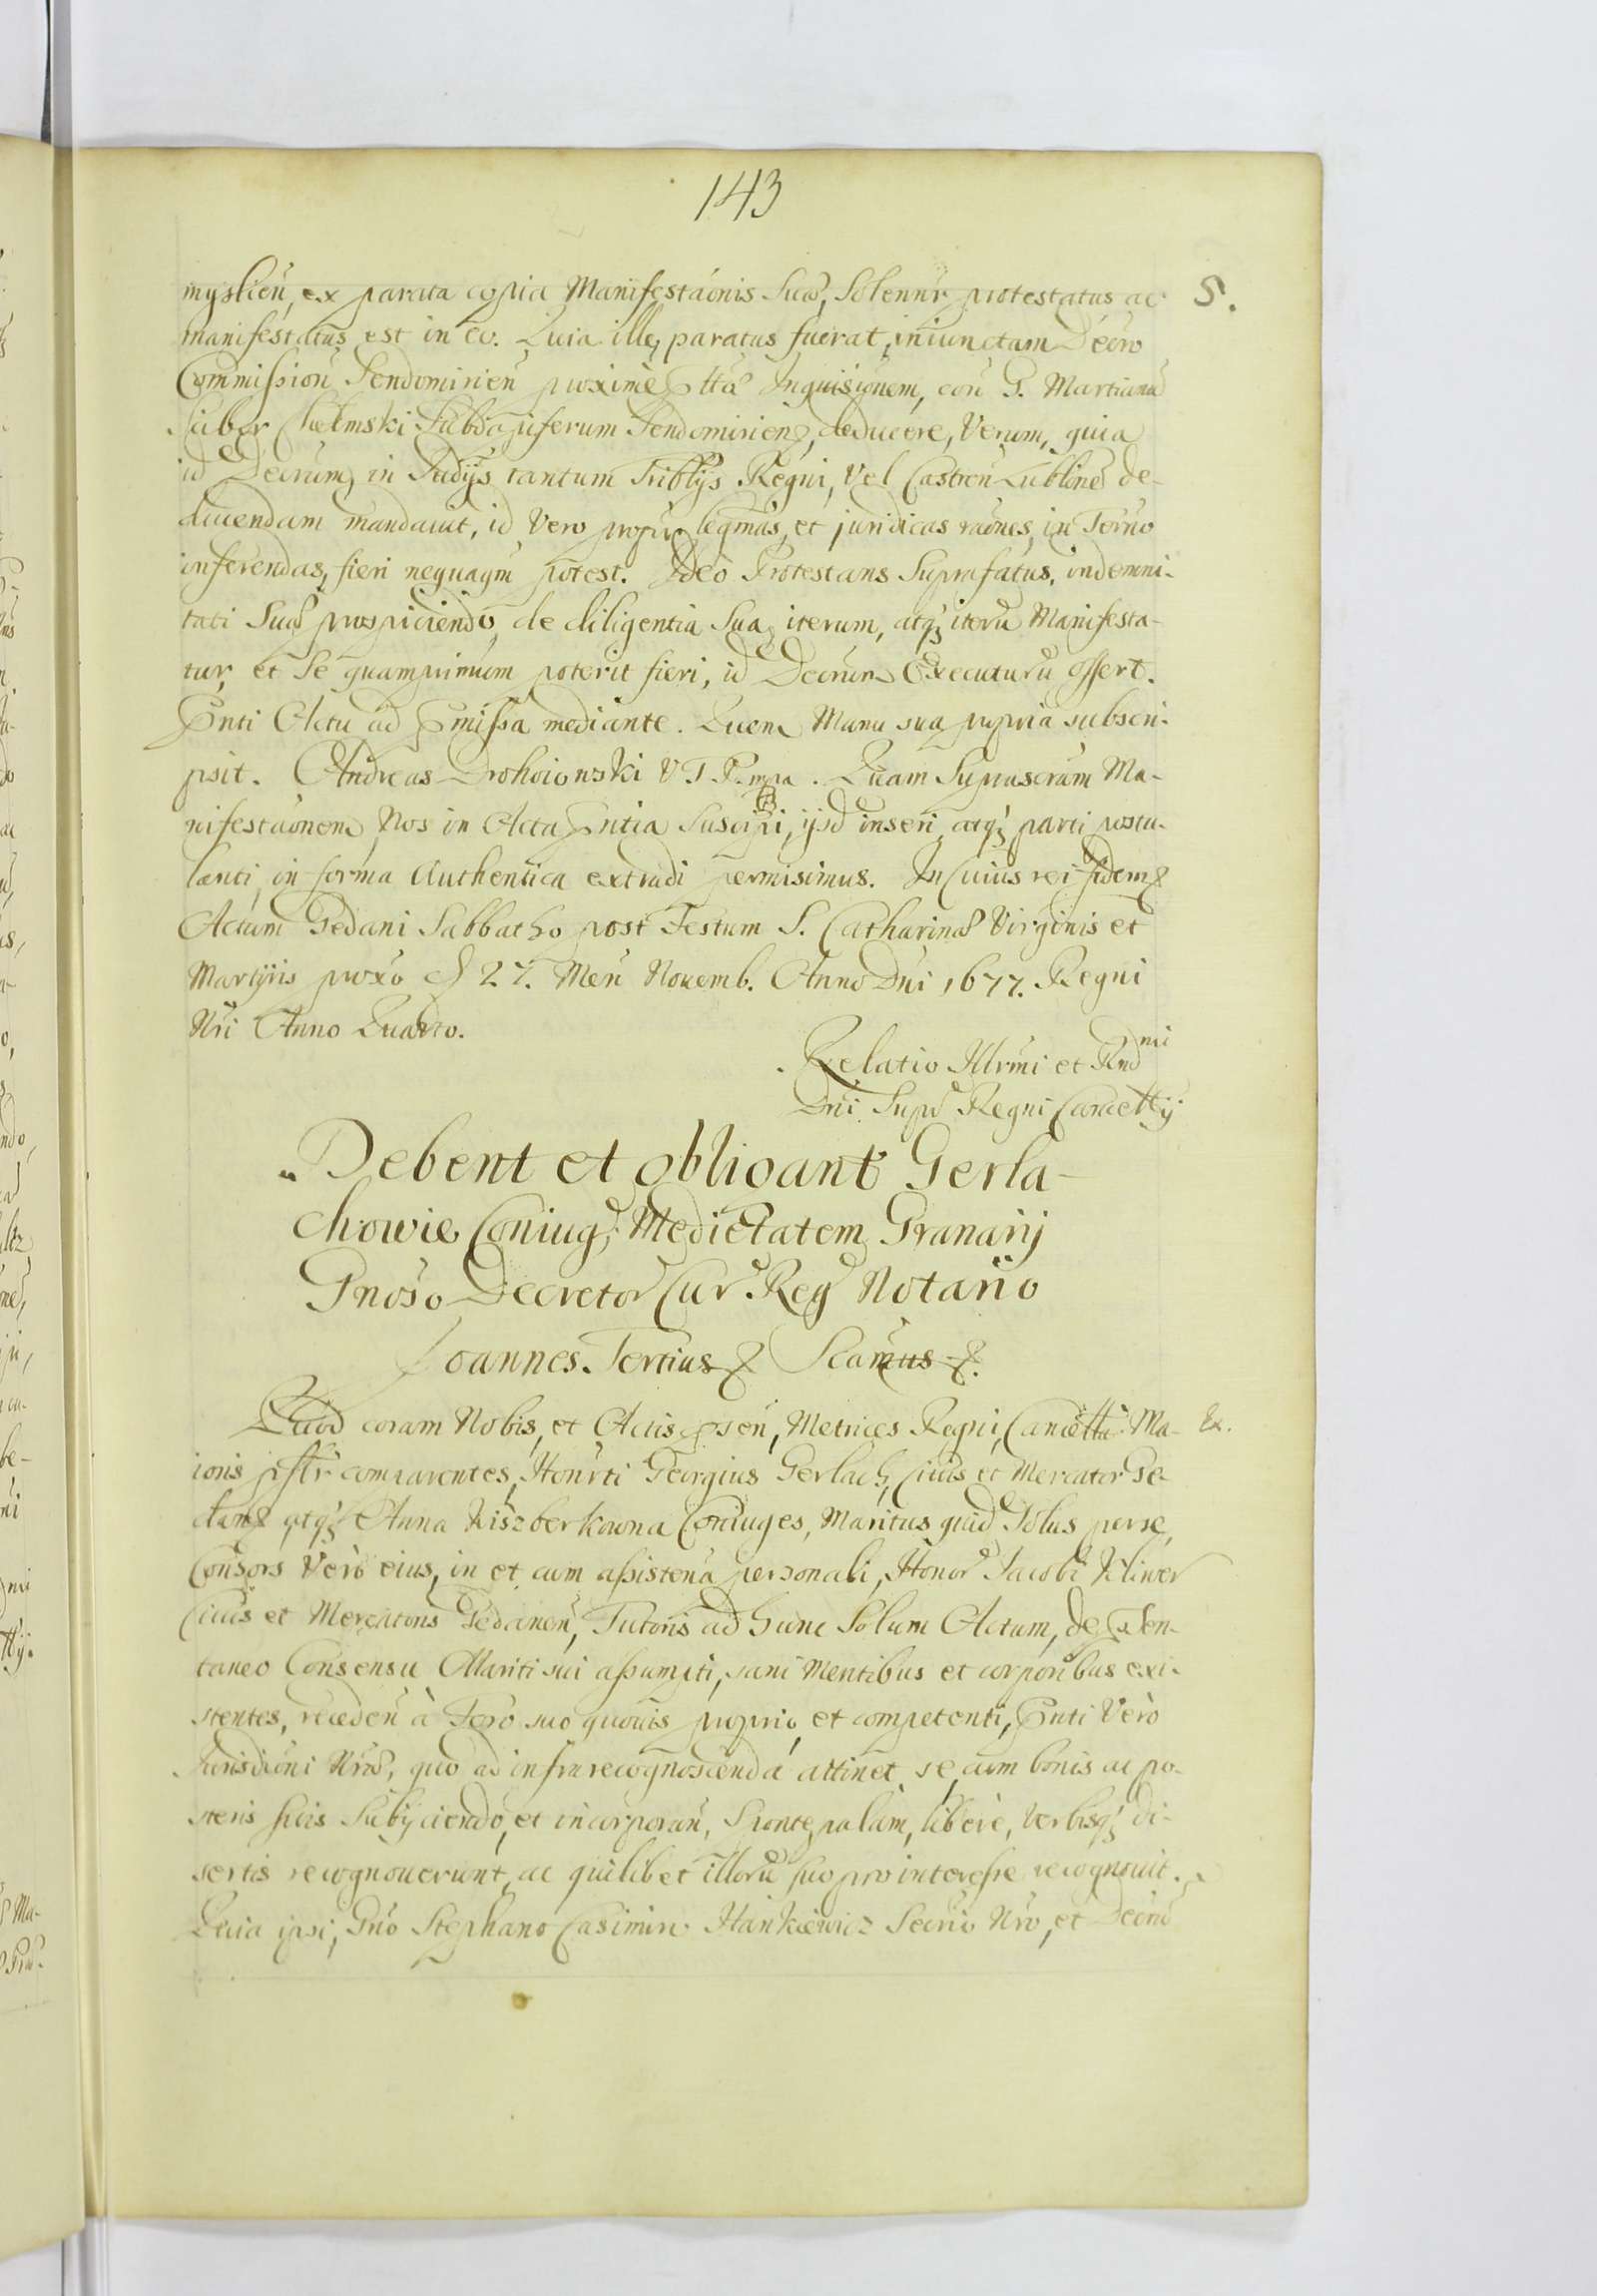 143
myslien, ex parata copia Manifestaonis Suae, Solennr protestatus ac S.
manifestatus est in eo. Quia ille, paratus fuerat, iniunctam Decro
Commission Sendomirien proxime Inquisionem, con G. Martianu
Scibor Chełmski Subdapiferum Sendomirien, deducere, Verum, quia
id Decrum, in Iudys tantum Triblys Regni, Vel Castren Lublinen de-
ducendam mandauit, id Vero propr legmas, et juridicas raones, in Termo
inferendas, fieri nequaqm potest. Ideo Protestans Suprafatus, indemni-
tati Suae prospiciendo, de diligentia Sua, iterum, atq iteru Manifesta-
tur, et Se quamprimum poterit fieri, id Decrum Executuru offert.
Pnti Actu ad Pmissa mediante. Quem Manu sua propria subscri-
psit. Andreas Drohoiowski V J P. mpa. Quam Suprascram Ma-
nifestaonem, Nos in Acta Pntia Suscipi, ijsd inseri, atq parti postu-
lanti, in forma Authentica extradi permisimus. In Cuius rei fidem
Actum Gedani Sabbatho post Festum S. Catharinae Virginis et
Martyris proxo d 27. Men Nouemb. Anno Dni 1677. Regni
Nri Anno Quarto.
Relatio Illrmi et Rndmi
Dni Supr Regni Cancellij
Debent et obligant Gerla-
chowie Coniug, Medietatem Granarij
Gnoso Decretor Cur Reg Notario
Joannes Tertius Scamus
Quod coram Nobis, et Actis psen, Metrices Regni, Cancella Ma- Ex.
ioris pslr comparentes, Honrti Georgius Gerlach, Ciuis et Mercator Ge-
dan atq Anna Kiszberkowna Coniuges, Maritus quid Solus per se,
Consors Vero eius, in et cum assistena personali, Honor Jacobi Klinver
Ciuis et Mercatoris Gedanen, Tutoris ad hunc Solum Actum, de Psen-
taneo Consensu Mariti sui assumpti, sani Mentibus et corporibus exi-
stentes, receden à Foro suo quouis proprio, et competenti, Pnti Vero
Jurisdioni Nrae, quo ad infra recognoscenda attinet, se, cum bonis ac po-
steris suis Subijciendo, et incorporan, Sponte, palam, libere, Verbisq di-
sertis recognouerunt, ac quilibet illoru suo pro interesse recognouit.
Quia ipsi, Gno Stephano Casimiro Hankiewicz Secrio Nro, et Decro